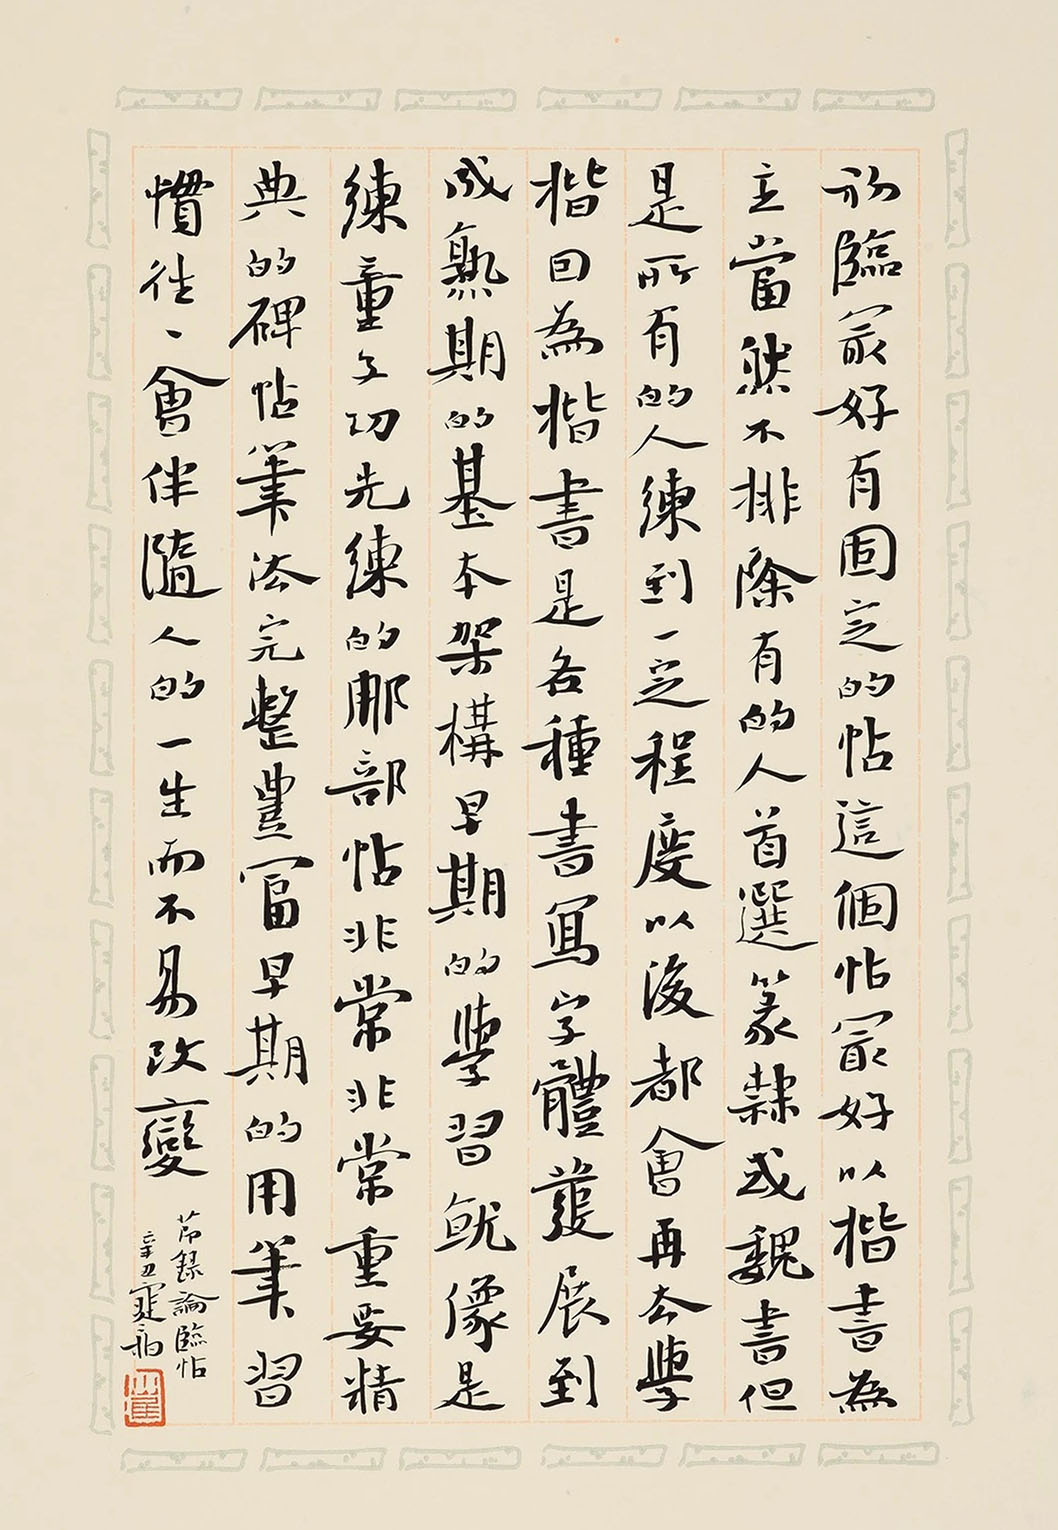 初臨冣好有固定的帖這個帖冣好以楷書為
主當然不排除有的人首選篆隸或魏書但
是所有的人練到一定程度以後都會再去學
楷囙為楷書是各種書寫字體發展到
成熟期的基本架構早期的學習就像是
練童子功先練的那部帖非常非常重要精
典的碑帖筆法完整豐富早期的用筆習
慣往〻會伴隨人的一生而不易改變
節錄論臨帖
辛丑